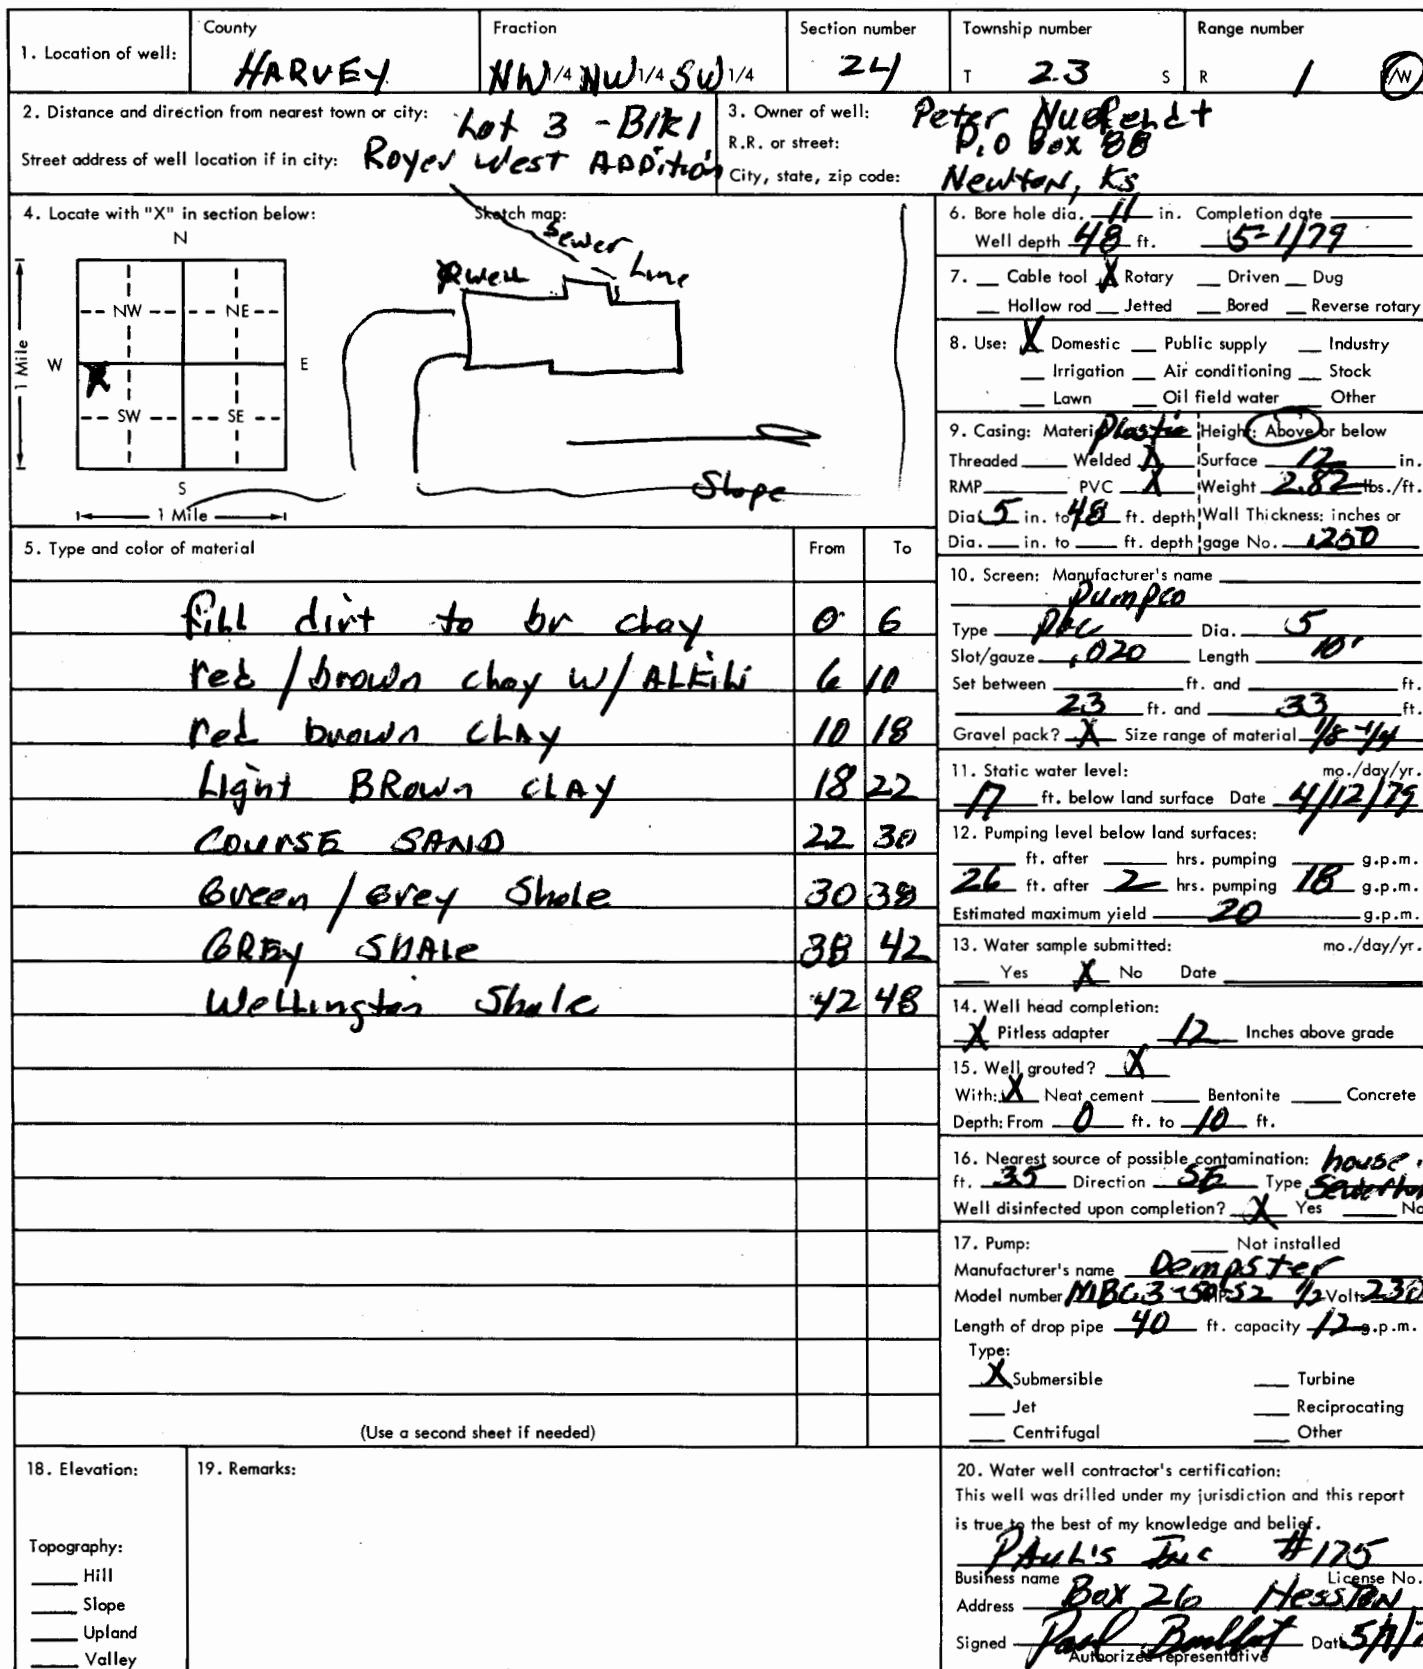 County Fraction Section number Township number Range number
1. Location of well: HARVEY NW 1/4 NW 1/4 SW 1/4 24 T 23 S R 1 /W
2. Distance and direction from nearest town or city: Lot 3 - Blk 1
Street address of well location if in city: Royer West ADDition
3. Owner of well: Peter
R.R. or street: P.O Box 88
City, state, zip code: Newton, Ks
4. Locate with "X" in section below: Sketch map:
N
NW NE
W E
SW SE
S
1 Mile
1 Mile
X
Sewer
Line
Well
Slope
5. Type and color of material From To
fill dirt to br clay 0 6
red / brown clay w/ ALKili 6 10
red brown CLAY 10 18
Light BROwn CLAY 18 22
COURSE SAND 22 30
Green / Grey Shale 30 38
GREy SHALe 38 42
Wellington Shale 42 48
(Use a second sheet if needed)
6. Bore hole dia. 11 in. Completion date
Well depth 48 ft. 5-1/79
7. Cable tool X Rotary Driven Dug
Hollow rod Jetted Bored Reverse rotary
8. Use: X Domestic Public supply Industry
Irrigation Air conditioning Stock
Lawn Oil field water Other
9. Casing: Material Plastic Height: Above or below
Threaded Welded X Surface 12 in.
RMP PVC X Weight 2.82 lbs./ft.
Dia. 5 in. to 48 ft. depth Wall Thickness: inches or
Dia. in. to ft. depth gage No. .250
10. Screen: Manufacturer's name
Pumpco
Type PVC Dia. 5
Slot/gauze .020 Length 10'
Set between ft. and ft.
23 ft. and 33 ft.
Gravel pack? X Size range of material 1/8 - 1/4
11. Static water level: mo./day/yr.
17 ft. below land surface Date 4/12/79
12. Pumping level below land surfaces:
ft. after hrs. pumping g.p.m.
26 ft. after 2 hrs. pumping 18 g.p.m.
Estimated maximum yield 20 g.p.m.
13. Water sample submitted: mo./day/yr.
Yes X No Date
14. Well head completion:
X Pitless adapter 12 Inches above grade
15. Well grouted? X
With: X Neat cement Bentonite Concrete
Depth: From 0 ft. to 10 ft.
16. Nearest source of possible contamination: house
ft. 35 Direction SE Type
Well disinfected upon completion? X Yes No
17. Pump: Not installed
Manufacturer's name Dempster
Model number HP 1/2 Volts 230
Length of drop pipe 40 ft. capacity 12 g.p.m.
Type:
X Submersible Turbine
Jet Reciprocating
Centrifugal Other
18. Elevation:
Topography:
Hill
Slope
Upland
Valley
19. Remarks:
20. Water well contractor's certification:
This well was drilled under my jurisdiction and this report
is true to the best of my knowledge and belief.
PAUL'S Inc #175
Business name License No.
Address Box 26 HessTon
Signed Paul Date
Authorized representative